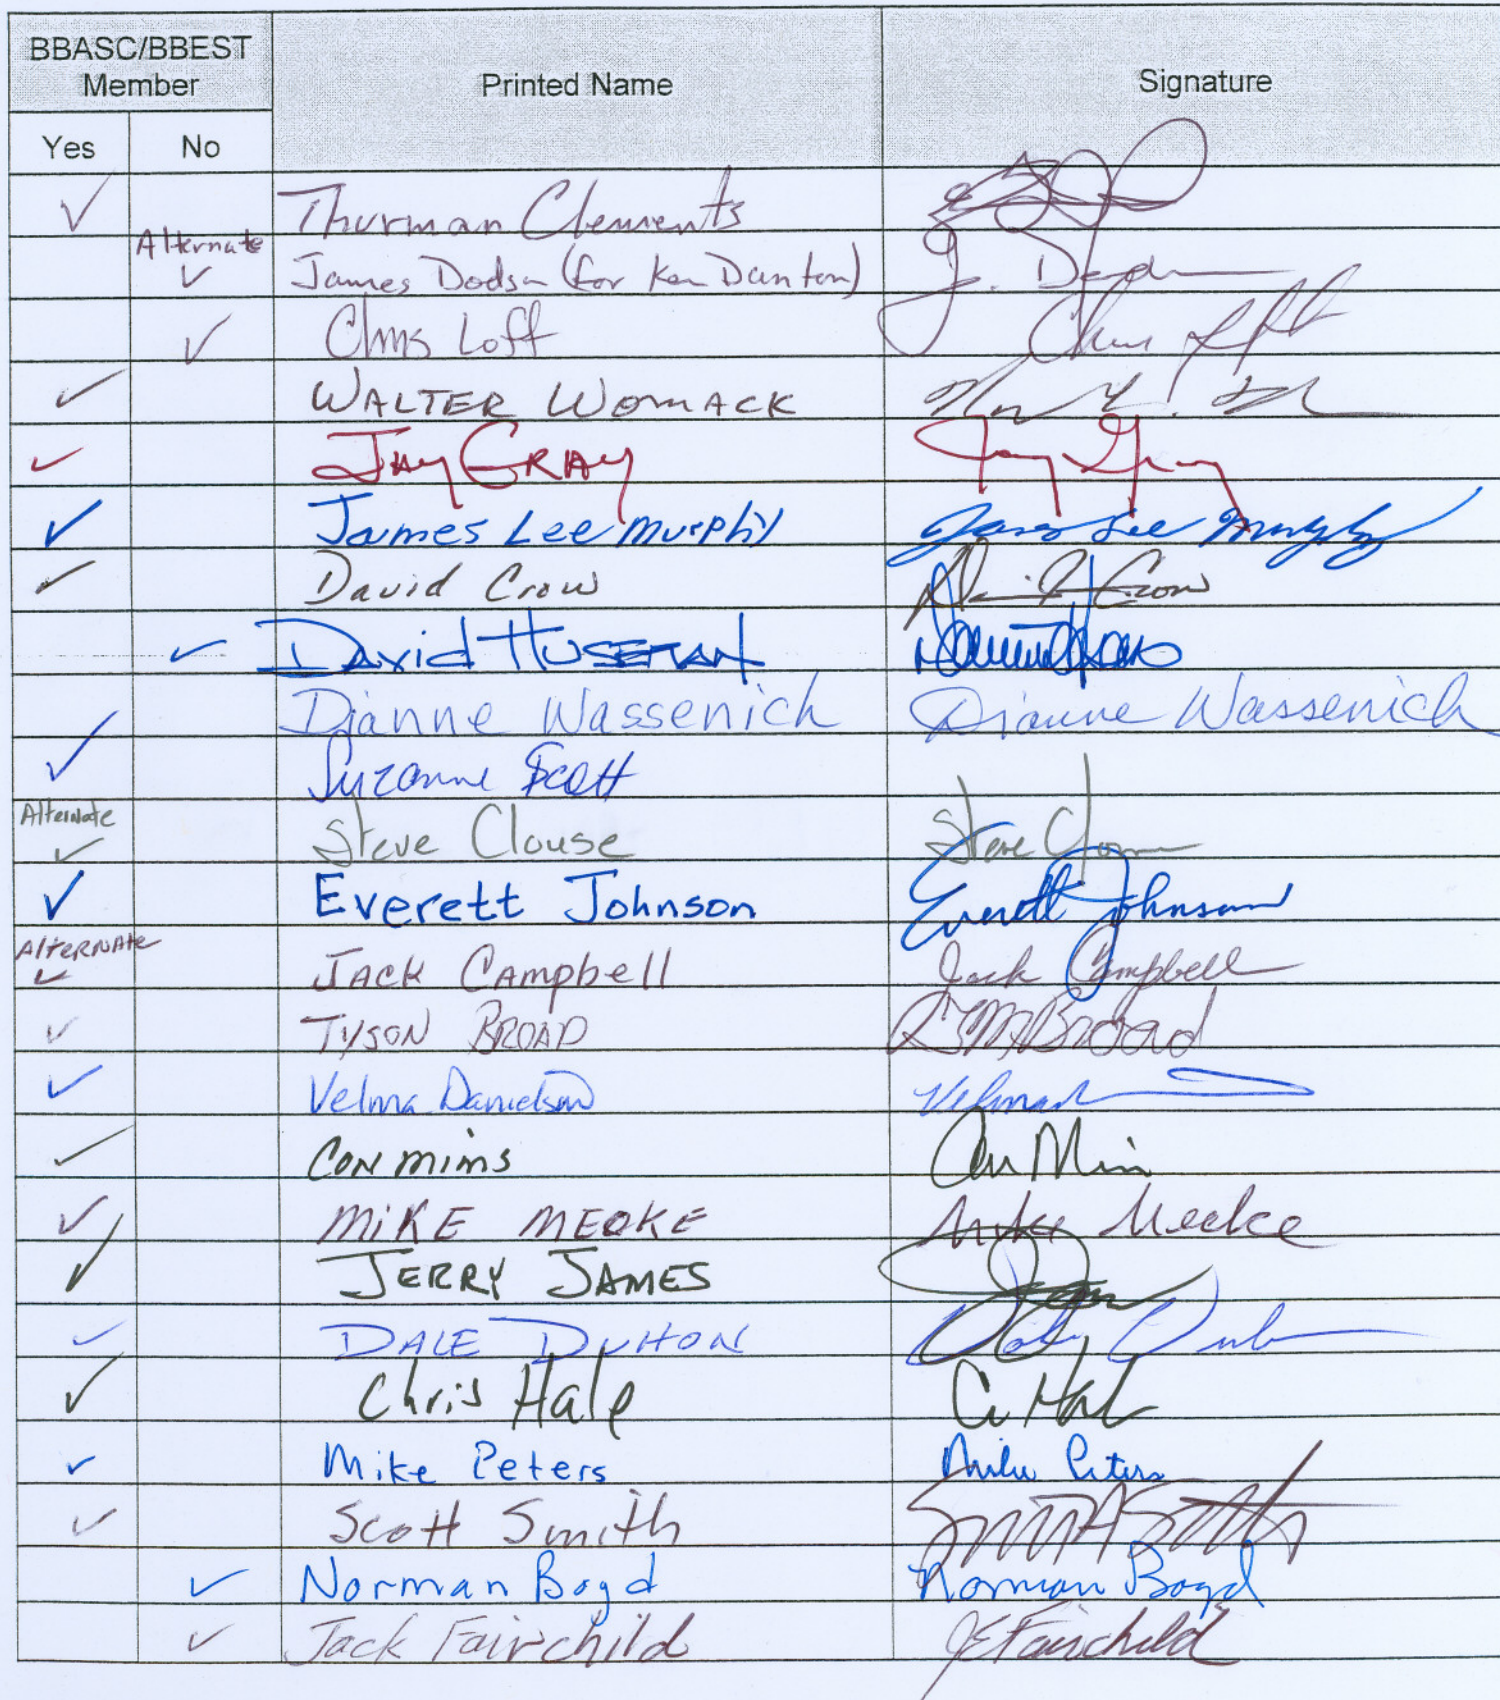 BBASC/BBEST Member Printed Name Signature
Yes No
✓ Thurman Clements
Alternate ✓ James Dodson (for Ken Dunton) J. Dodson
✓ Chris Loft Chris Loft
✓ WALTER WOMACK
✓ JAY GRAY Jay Gray
✓ James Lee Murphy James Lee Murphy
✓ David Crow David Crow
✓ David HUSEMAN
Dianne Wassenich Dianne Wassenich
✓ Suzanne Scott
Alternate ✓ Steve Clouse Steve Clouse
✓ Everett Johnson Everett Johnson
Alternate ✓ JACK CAMpbell Jack Campbell
✓ TYSON BROAD Broad
✓ Velma Danielson Velma
✓ CON MIMS Con Mims
✓ MIKE MECKE Mike Mecke
✓ JERRY JAMES
✓ DALE DUHON
✓ Chris Hale
✓ Mike Peters Mike Peters
✓ Scott Smith
✓ Norman Boyd Norman Boyd
✓ Jack Fairchild JEFairchild